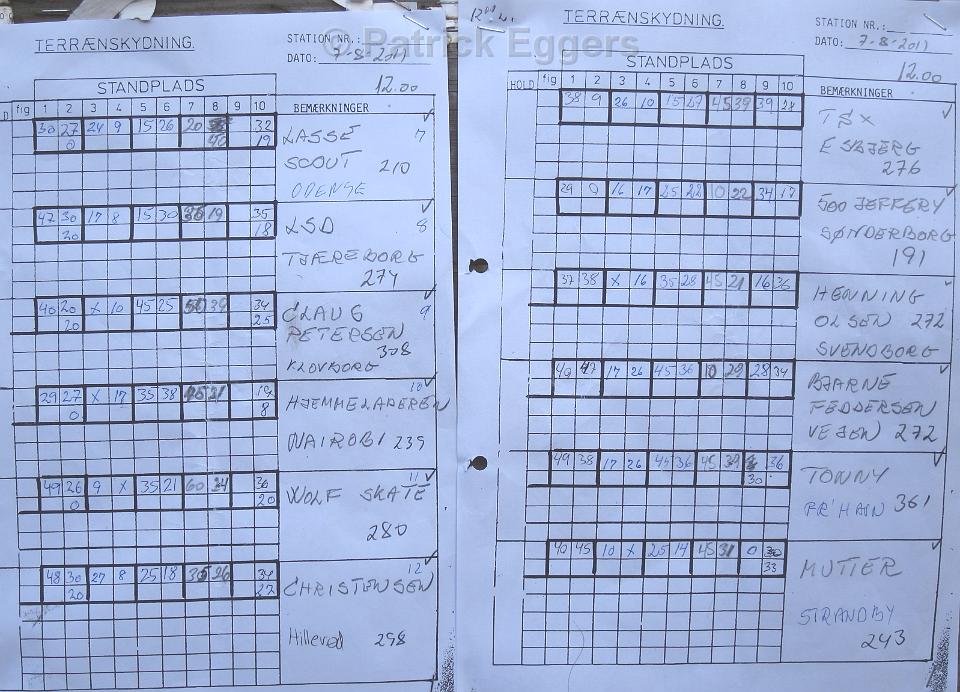 © Patrick Eggers
TERRÆNSKYDNING.
STATION NR.:
DATO: 7-8-2011
STANDPLADS
12.00
fig 1 2 3 4 5 6 7 8 9 10 BEMÆRKNINGER
30 27 24 9 15 26 20 32
0 40 19
LASSE 7
SCOUT 210
ODENSE
47 30 17 8 15 30 19 35
20 18
LSD 8
TJÆREBORG
274
40 20 X 10 45 25 39 34
20 25
CLAUS 9
PETERSEN
308
KLOVBORG
29 27 X 17 35 38 21 19
0 8
10
HJEMMELAPEREN
NAIROBI 239
49 26 9 X 35 21 60 34 36
0 20
11
WOLF SKATE
280
48 30 27 8 25 18 26 34
20 27
12
CHRISTENSEN
Hillerød 298
TERRÆNSKYDNING.
STATION NR.:
DATO: 7-8-2011
STANDPLADS
12.00
HOLD fig 1 2 3 4 5 6 7 8 9 10 BEMÆRKNINGER
38 9 26 10 15 27 45 39 39 28
TSX
ESBJERG
276
29 0 16 17 25 22 10 22 34 17
500 JEFFERY
SØNDERBORG
191
37 38 X 16 35 28 45 21 16 36
HENNING
OLSEN 272
SVENDBORG
49 47 17 26 45 36 10 29 28 34
BJARNE
FEDDERSEN
VEJEN 272
49 38 17 26 45 36 45 39 36
30
TONNY
361
40 45 10 X 25 14 45 31 0 30
33
MUTTER
STRANDBY
243